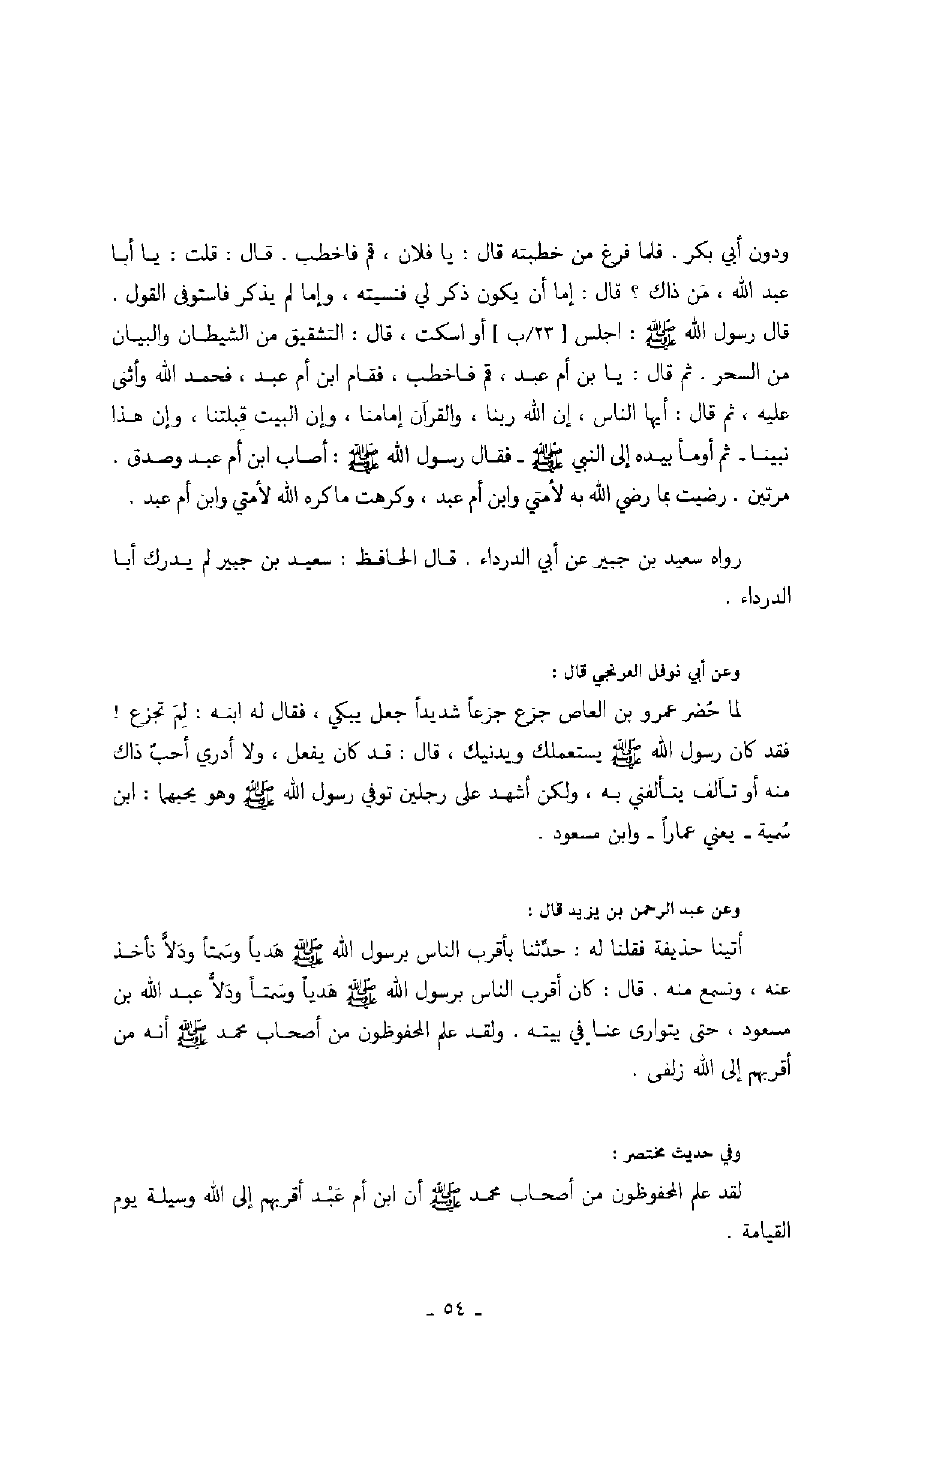 ودون أبي بكر . فلما فرغ من خطبته قال : يا فلان ، قم فاخطب . قال : قلت : يا أبا
عبد الله ، مَن ذاك ؟ قال : إما أن يكون ذكر لي فنسيته ، وإما لم يذكر فاستوفى القول .
قال رسول الله ﷺ : اجلس [ ٢٣/ب ] أو اسكت ، قال : التشقيق من الشيطان والبيان
من السحر . ثم قال : يا بن أم عبد ، قم فاخطب ، فقام ابن أم عبد ، فحمد الله وأثنى
عليه ، ثم قال : أيها الناس ، إن الله ربنا ، والقرآن إمامنا ، وإن البيت قبلتنا ، وإن هذا
نبينا ـ ثم أومأ بيده إلى النبي ﷺ ـ فقال رسول الله ﷺ : أصاب ابن أم عبد وصدق .
مرتين . رضيت بما رضي الله به لأمتي وابن أم عبد ، وكرهت ماكره الله لأمتي وابن أم عبد .
رواه سعيد بن جبير عن أبي الدرداء . قال الحافظ : سعيد بن جبير لم يدرك أبا
الدرداء .
وعن أبي نوفل العرنجي قال :
لما حُضر عمرو بن العاص جزع جزعاً شديداً جعل يبكي ، فقال له ابنه : لِمَ تجزع !
فقد كان رسول الله ﷺ يستعملك ويدنيك ، قال : قد كان يفعل ، ولا أدري أحبٌ ذاك
منه أو تآلف يتألفني به ، ولكن أشهد على رجلين توفي رسول الله ﷺ وهو يحبهما : ابن
سُمية ـ يعني عماراً ـ وابن مسعود .
وعن عبد الرحمن بن يزيد قال :
أتينا حذيفة فقلنا له : حدّثنا بأقرب الناس برسول الله ﷺ هَدياً وسَمتاً ودَلاًّ نأخذ
عنه ، ونسمع منه . قال : كان أقرب الناس برسول الله ﷺ هَدياً وسَمتاً ودَلاًّ عبد الله بن
مسعود ، حتى يتوارى عنا في بيته . ولقد علم المحفوظون من أصحاب محمد ﷺ أنه من
أقربهم إلى الله زلفى .
وفي حديث مختصر :
لقد علم المحفوظون من أصحاب محمد ﷺ أن ابن أم عَبْد أقربهم إلى الله وسيلة يوم
القيامة .
ـ ٥٤ ـ